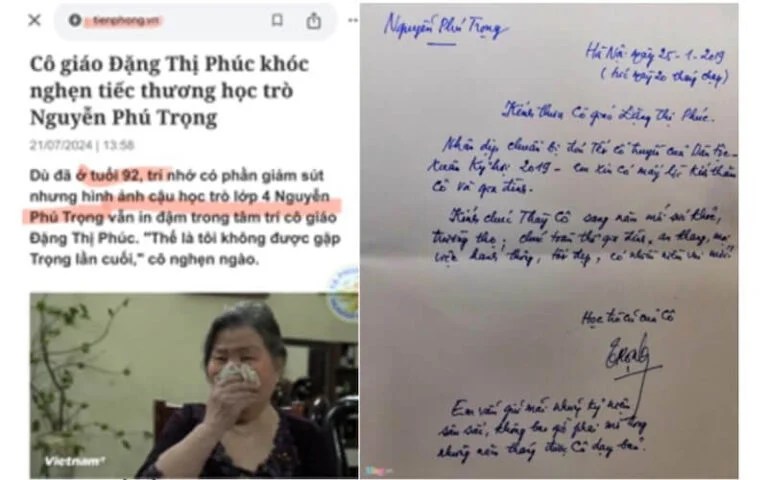 tienphong.vn
Cô giáo Đặng Thị Phúc khóc
nghẹn tiếc thương học trò
Nguyễn Phú Trọng
21/07/2024 | 13:58
Dù đã ở tuổi 92, trí nhớ có phần giảm sút
nhưng hình ảnh cậu học trò lớp 4 Nguyễn
Phú Trọng vẫn in đậm trong tâm trí cô giáo
Đặng Thị Phúc. "Thế là tôi không được gặp
Trọng lần cuối," cô nghẹn ngào.
Vietnam+
Nguyễn Phú Trọng
Hà Nội ngày 25-1-2019
( ngày 20 tháng chạp)
Kính thưa Cô giáo Đặng Thị Phúc.
Nhân dịp chuẩn bị đón Tết cổ truyền của Dân tộc-
Xuân Kỷ hợi 2019 - em xin có mấy lời kính thăm
Cô và gia đình.
Kính chúc Thầy Cô sang năm mới sức khỏe,
trường thọ; chúc toàn thể gia đình, an khang, mọi
việc hanh thông, tốt đẹp, có nhiều niềm vui mới!
Học trò cũ của Cô
Trọng
Em vẫn giữ mãi những kỷ niệm
sâu sắc, không bao giờ phai mờ trong
những năm tháng được Cô dạy bảo.
Zing.vn